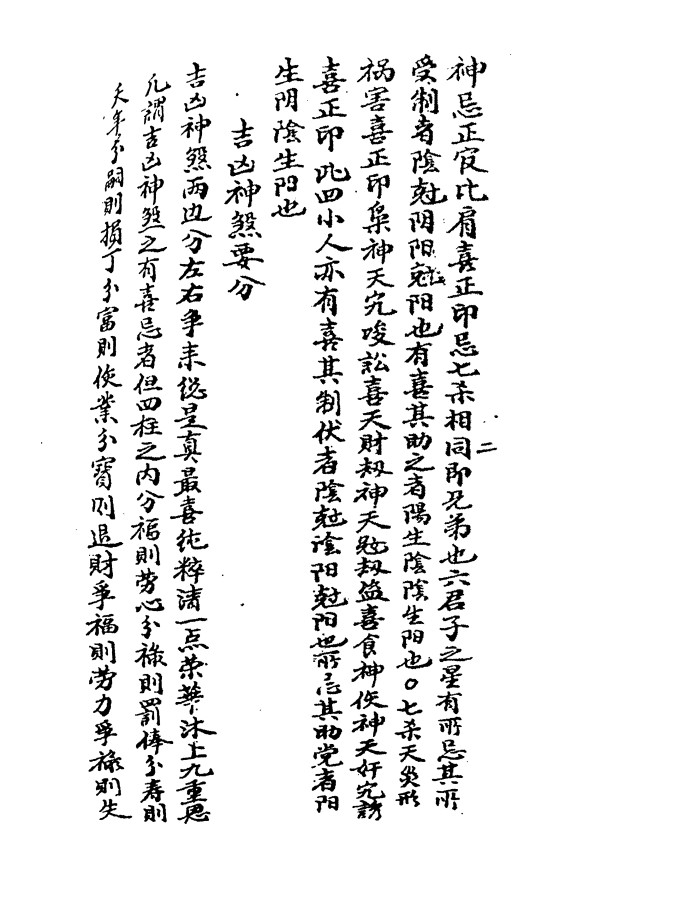 神忌正官比肩喜正印忌七杀相同即兄弟也六君子之星有所忌其所
受制者陰尅阴阳尅阳也有喜其助之者陽生陰陰生阳也〇七杀天災形
祸害喜正印枭神天宄唆訟喜天財刼神天尅刼盗喜食神伤神天奸宄謗
喜正印此四小人亦有喜其制伏者陰尅陰阳尅阳也所忌其助党者阳
生阴陰生阳也
吉凶神煞要分
吉凶神煞两边分左右争来縂是真最喜纯粹清一点荣華沐上九重恩
凡謂吉凶神煞之有喜忌者但四柱之内分福則劳心分祿則罰俸分寿則
夭年分嗣則損丁分富則使業分寶則退財爭福則劳力爭祿則失
二